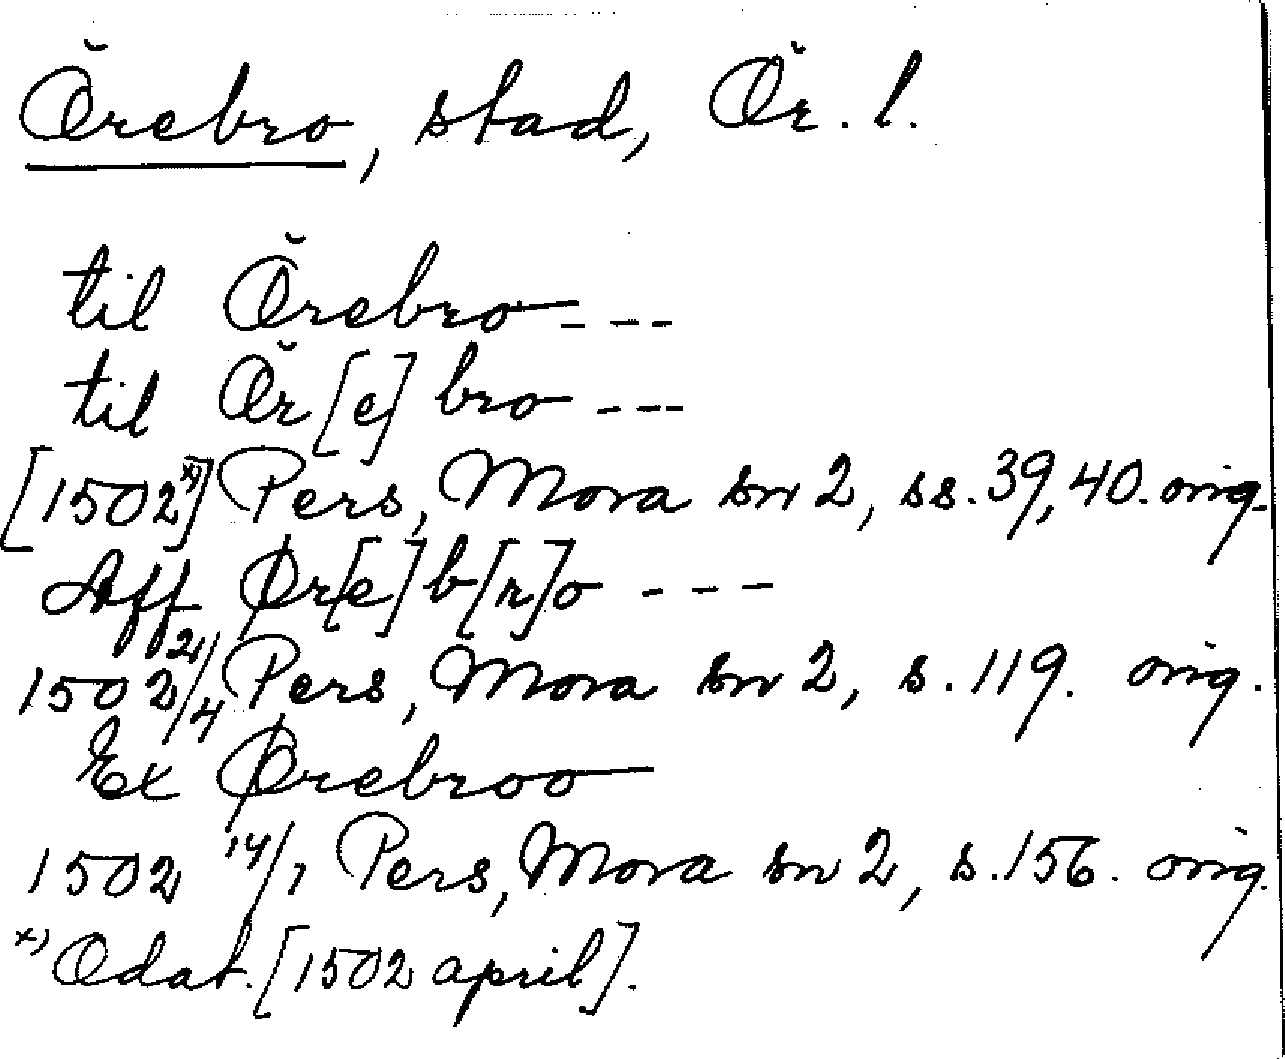 Örebro, stad, Ör. l.
til Örebro - - -
til Ör[e]bro - - -
[1502x)] Pers, Mora sn 2, ss. 39, 40. orig.
Aff Ør[e]b[r]o - - -
1502 21/4 Pers, Mora sn 2, s. 119. orig.
Ex Ørebroo
1502 14/7 Pers, Mora sn 2, s. 156. orig.
x) Odat. [1502 april].